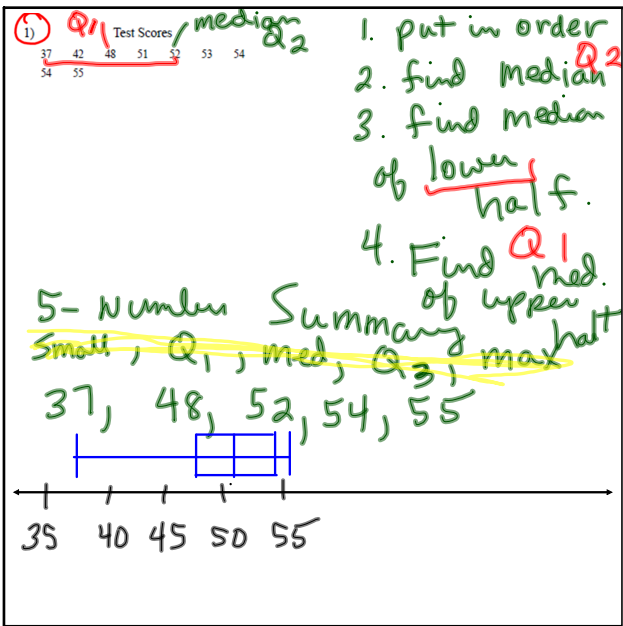 1) Q1 Test Scores median
Q2
37 42 48 51 52 53 54
54 55
1. put in order
2. find median Q2
3. find median
of lower
half.
4. Find Q1
med.
of upper
half
5-Number Summary
Small, Q1, med, Q3, max
37, 48, 52, 54, 55
35 40 45 50 55